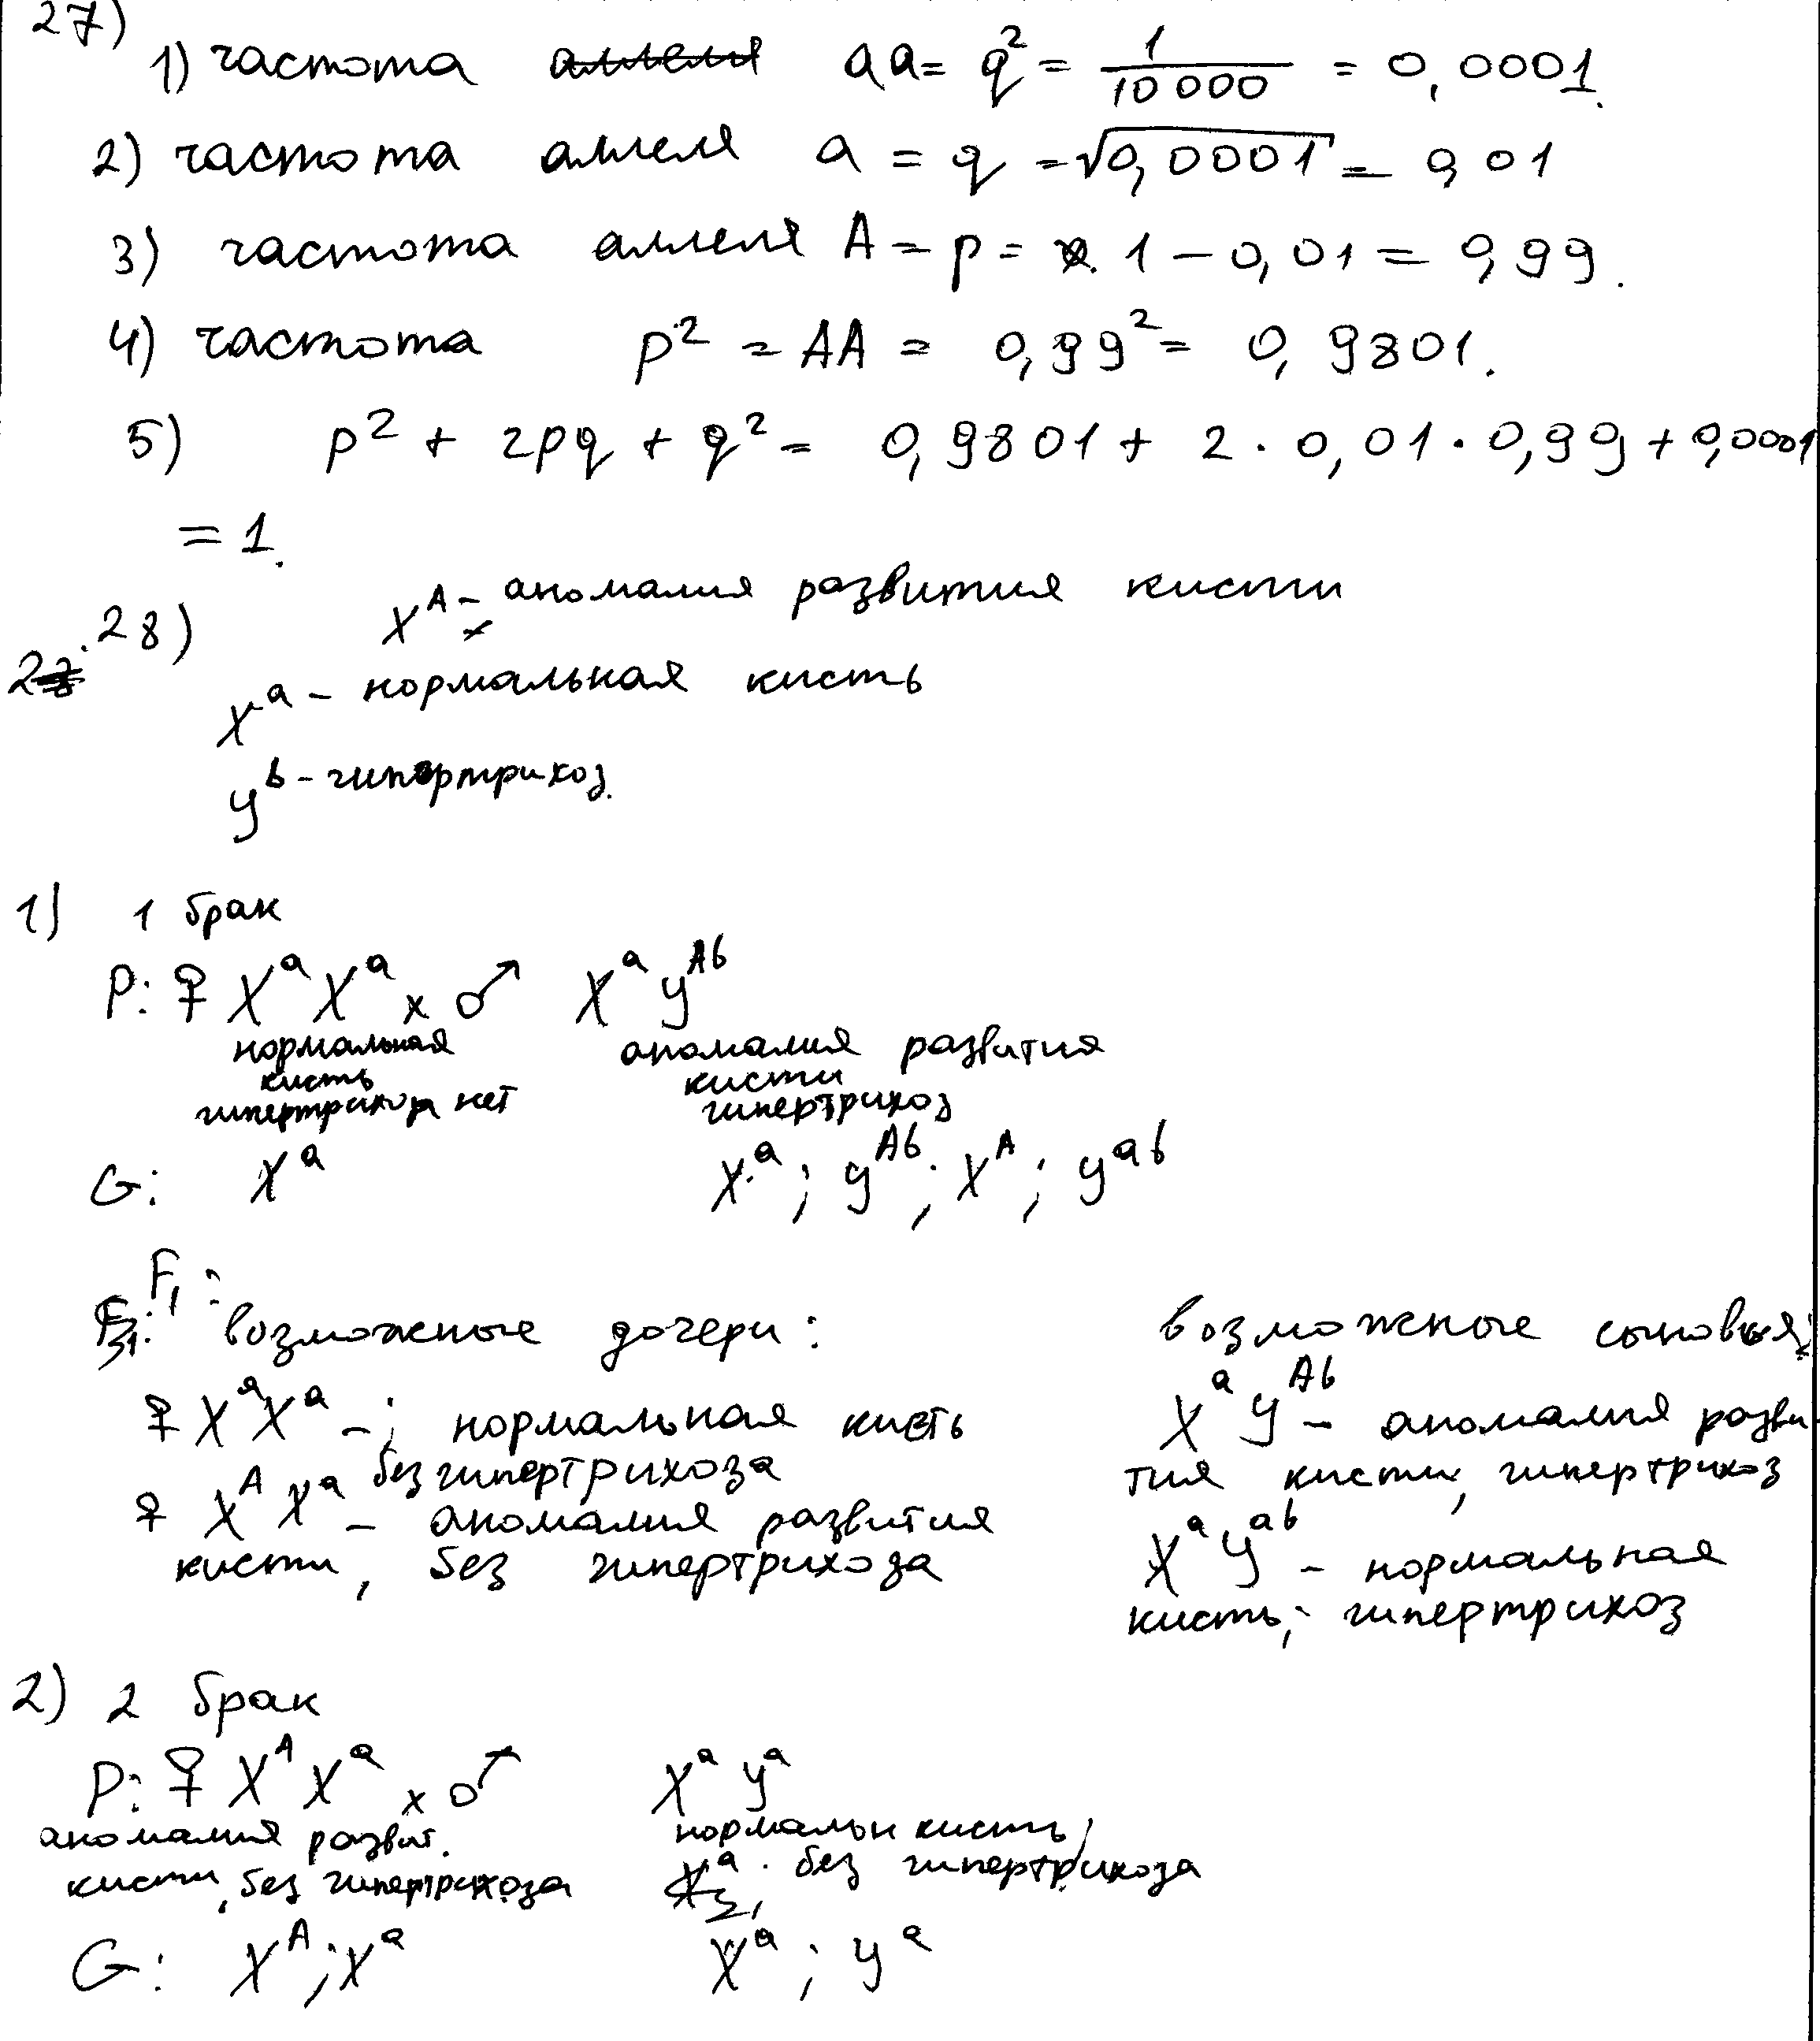 27)
1) частота аллеля aa = q² = 1/10 000 = 0,0001.
2) частота аллеля a = q = √0,0001 = 0,01
3) частота аллеля A = p = 1 – 0,01 = 0,99.
4) частота p² = AA = 0,99² = 0,9801.
5) p² + 2pq + q² = 0,9801 + 2 · 0,01 · 0,99 + 0,0001
= 1.
28) X^A – аномалия развития кисти
X^a – нормальная кисть
y^b – гипертрихоз.
1) 1 брак
P: ♀ X^a X^a x ♂ X^a y^Ab
нормальная кисть гипертрихоза нет
аномалия развития кисти гипертрихоз
G: X^a X^a; y^Ab; X^A; y^ab
F₁:
возможные дочери: возможные сыновья:
♀ X^a X^a –; нормальная кисть без гипертрихоза
♀ X^A X^a – аномалия развития кисти, без гипертрихоза
X^a y^Ab – аномалия развития кисти, гипертрихоз
X^a y^ab – нормальная кисть; гипертрихоз
2) 2 брак
P: ♀ X^A X^a x ♂ X^a y^a
аномалия развит. кисти, без гипертрихоза
нормальн кисть, без гипертрихоза
G: X^A; X^a X^a; y^a